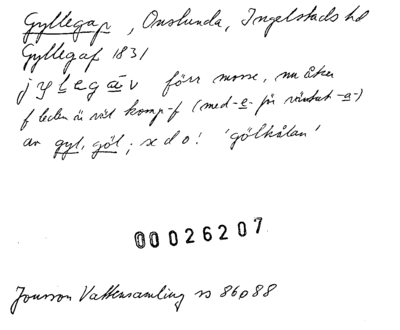 Gyllegap, Onslunda, Ingelstads hd
Gyllegaf 1831
jyllegāv förr mosse, nu åker
f leden är väl komp-f (med -e- för väntat -a-)
av gyl, göl; se d o! 'gölhålan'
00026207
Jonsson Vattensamling ss 86o88